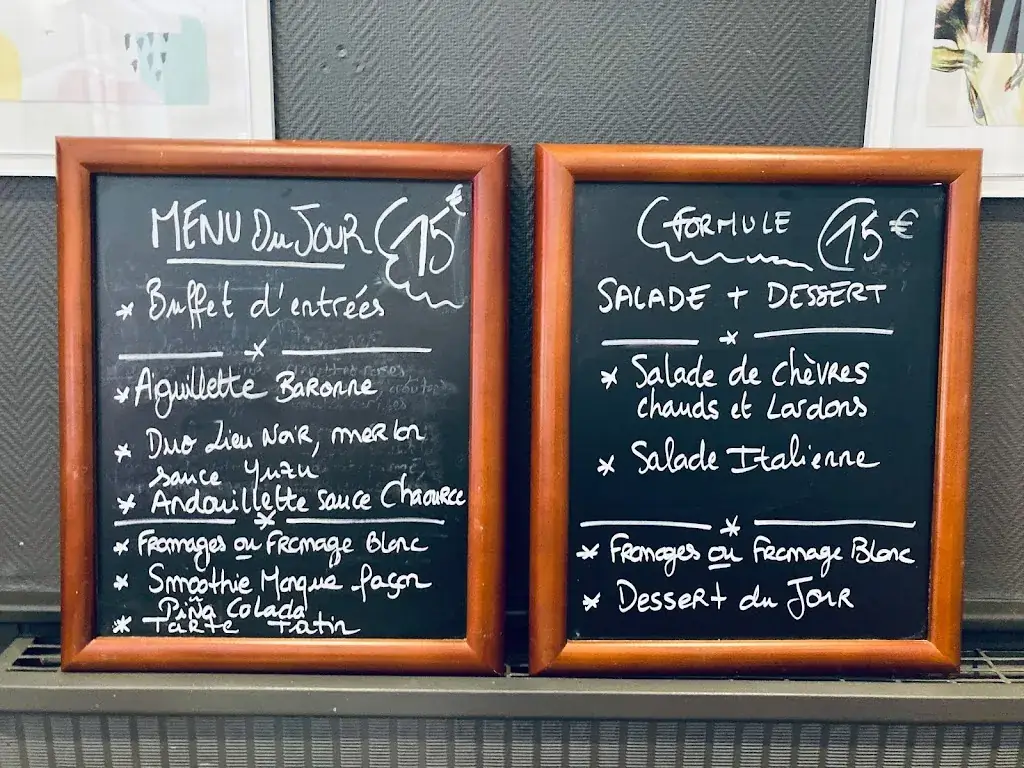 MENU Du JOUR 15€
* Buffet d'entrées
*
* Aiguillette Baronne
* Duo Lieu Noir, merlan
sauce Yuzu
* Andouillette sauce Chaource
*
* Fromages ou Fromage Blanc
* Smoothie Mangue façon
Piña Colada
* Tarte Tatin
FORMULE 15€
SALADE + DESSERT
*
* Salade de Chèvres
chauds et Lardons
* Salade Italienne
*
* Fromages ou Fromage Blanc
* Dessert du Jour